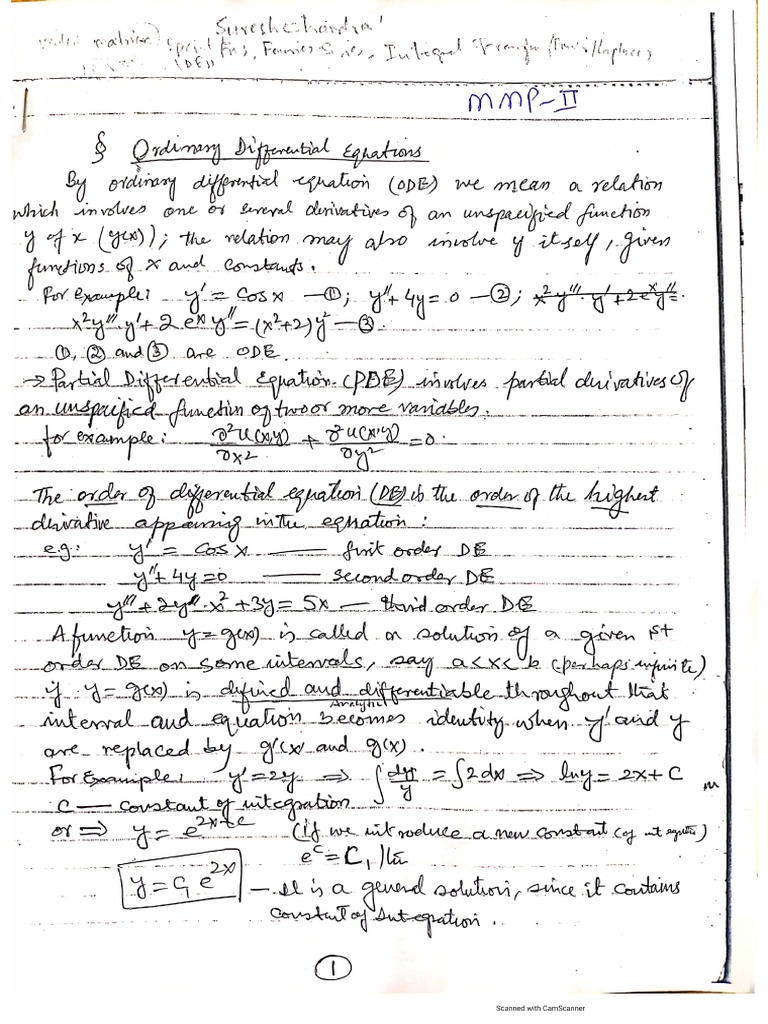 Sureshchandra'
matrices, Special Fns, Fourier Series, Integral Transfm (Fourier/Laplace)
(DE)
MMP-II
§ Ordinary Differential Equations
By ordinary differential equation (ODE) we mean a relation
which involves one or several derivatives of an unspecified function
y of x (y(x)); the relation may also involve y itself, given
functions of x and constants.
For example: y' = cosx —①; y''+4y=0 —②; x²y'''·y'+2eˣy''=
x²y'''·y'+2eˣy''=(x²+2)y² —③
①, ② and ③ are ODE.
→ Partial Differential Equation (PDE) involves partial derivatives of
an unspecified function of two or more variables.
for example: ∂²u(x,y)/∂x² + ∂²u(x,y)/∂y² = 0.
The order of differential equation (DE) is the order of the highest
derivative appearing in the equation:
e.g: y' = cosx —— first order DE
y''+4y=0 —— second order DE
y'''+2y''·x²+3y=5x — third order DE
A function y=g(x) is called a solution of a given 1st
order DE on some intervals, say a<x<b (perhaps infinite)
if y=g(x) is defined and differentiable throughout that
Analytic
interval and equation becomes identity when y' and y
are replaced by g'(x) and g(x).
For Example: y'=2y ⇒ ∫dy/y = ∫2dx ⇒ lny = 2x+C
C — constant of integration
or ⇒ y = e^(2x+c) (if we introduce a new constant (of integration)
e^c = C₁)
y = C₁e^(2x) — It is a general solution, since it contains
constant of Integration.
①
Scanned with CamScanner